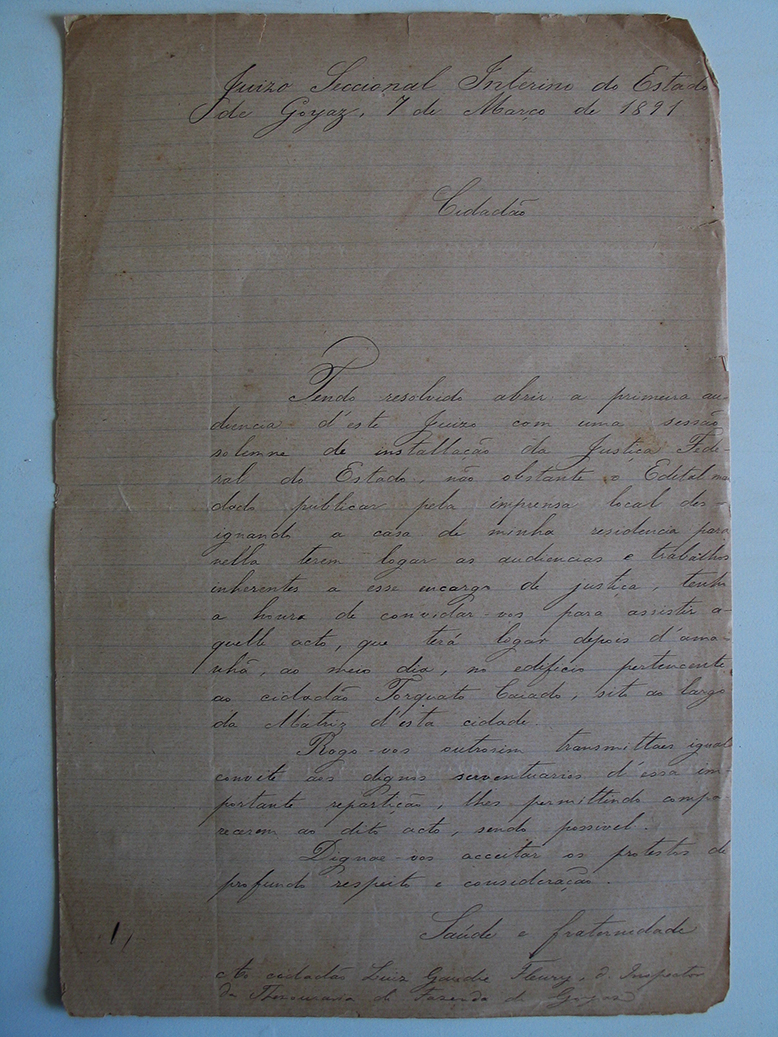 Juizo Seccional Interino do Estado
de Goyaz, 7 de Março de 1891
Cidadão
Tendo resolvido abrir a primeira au-
diencia d'este Juizo com uma sessão
solemne de installação da Justiça Fede-
ral do Estado, não obstante o Edital man
dado publicar pela imprensa local des-
ignando a casa de minha residencia para
nella terem logar as audiencias e trabalhos
inherentes a esse encargo de justiça, tenho
a honra de convidar-vos para assistir a-
quelle acto, que terá logar depois d'ama-
nhã, ao meio dia, no edificio pertencente
ao cidadão Torquato Caiado, sito ao largo
da Matriz d'esta cidade.
Rogo-vos outrosim transmittaes igual
convite aos dignos serventuarios d'essa im-
portante repartição, lhes permittindo compa-
recerem ao dito acto, sendo possivel.
Dignae-vos acceitar os protestos de
profundo respeito e consideração.
Saúde e fraternidade
Ao cidadão Luiz Gaudie Fleury, d. Inspector
da Thesouraria de Fazenda de Goyaz